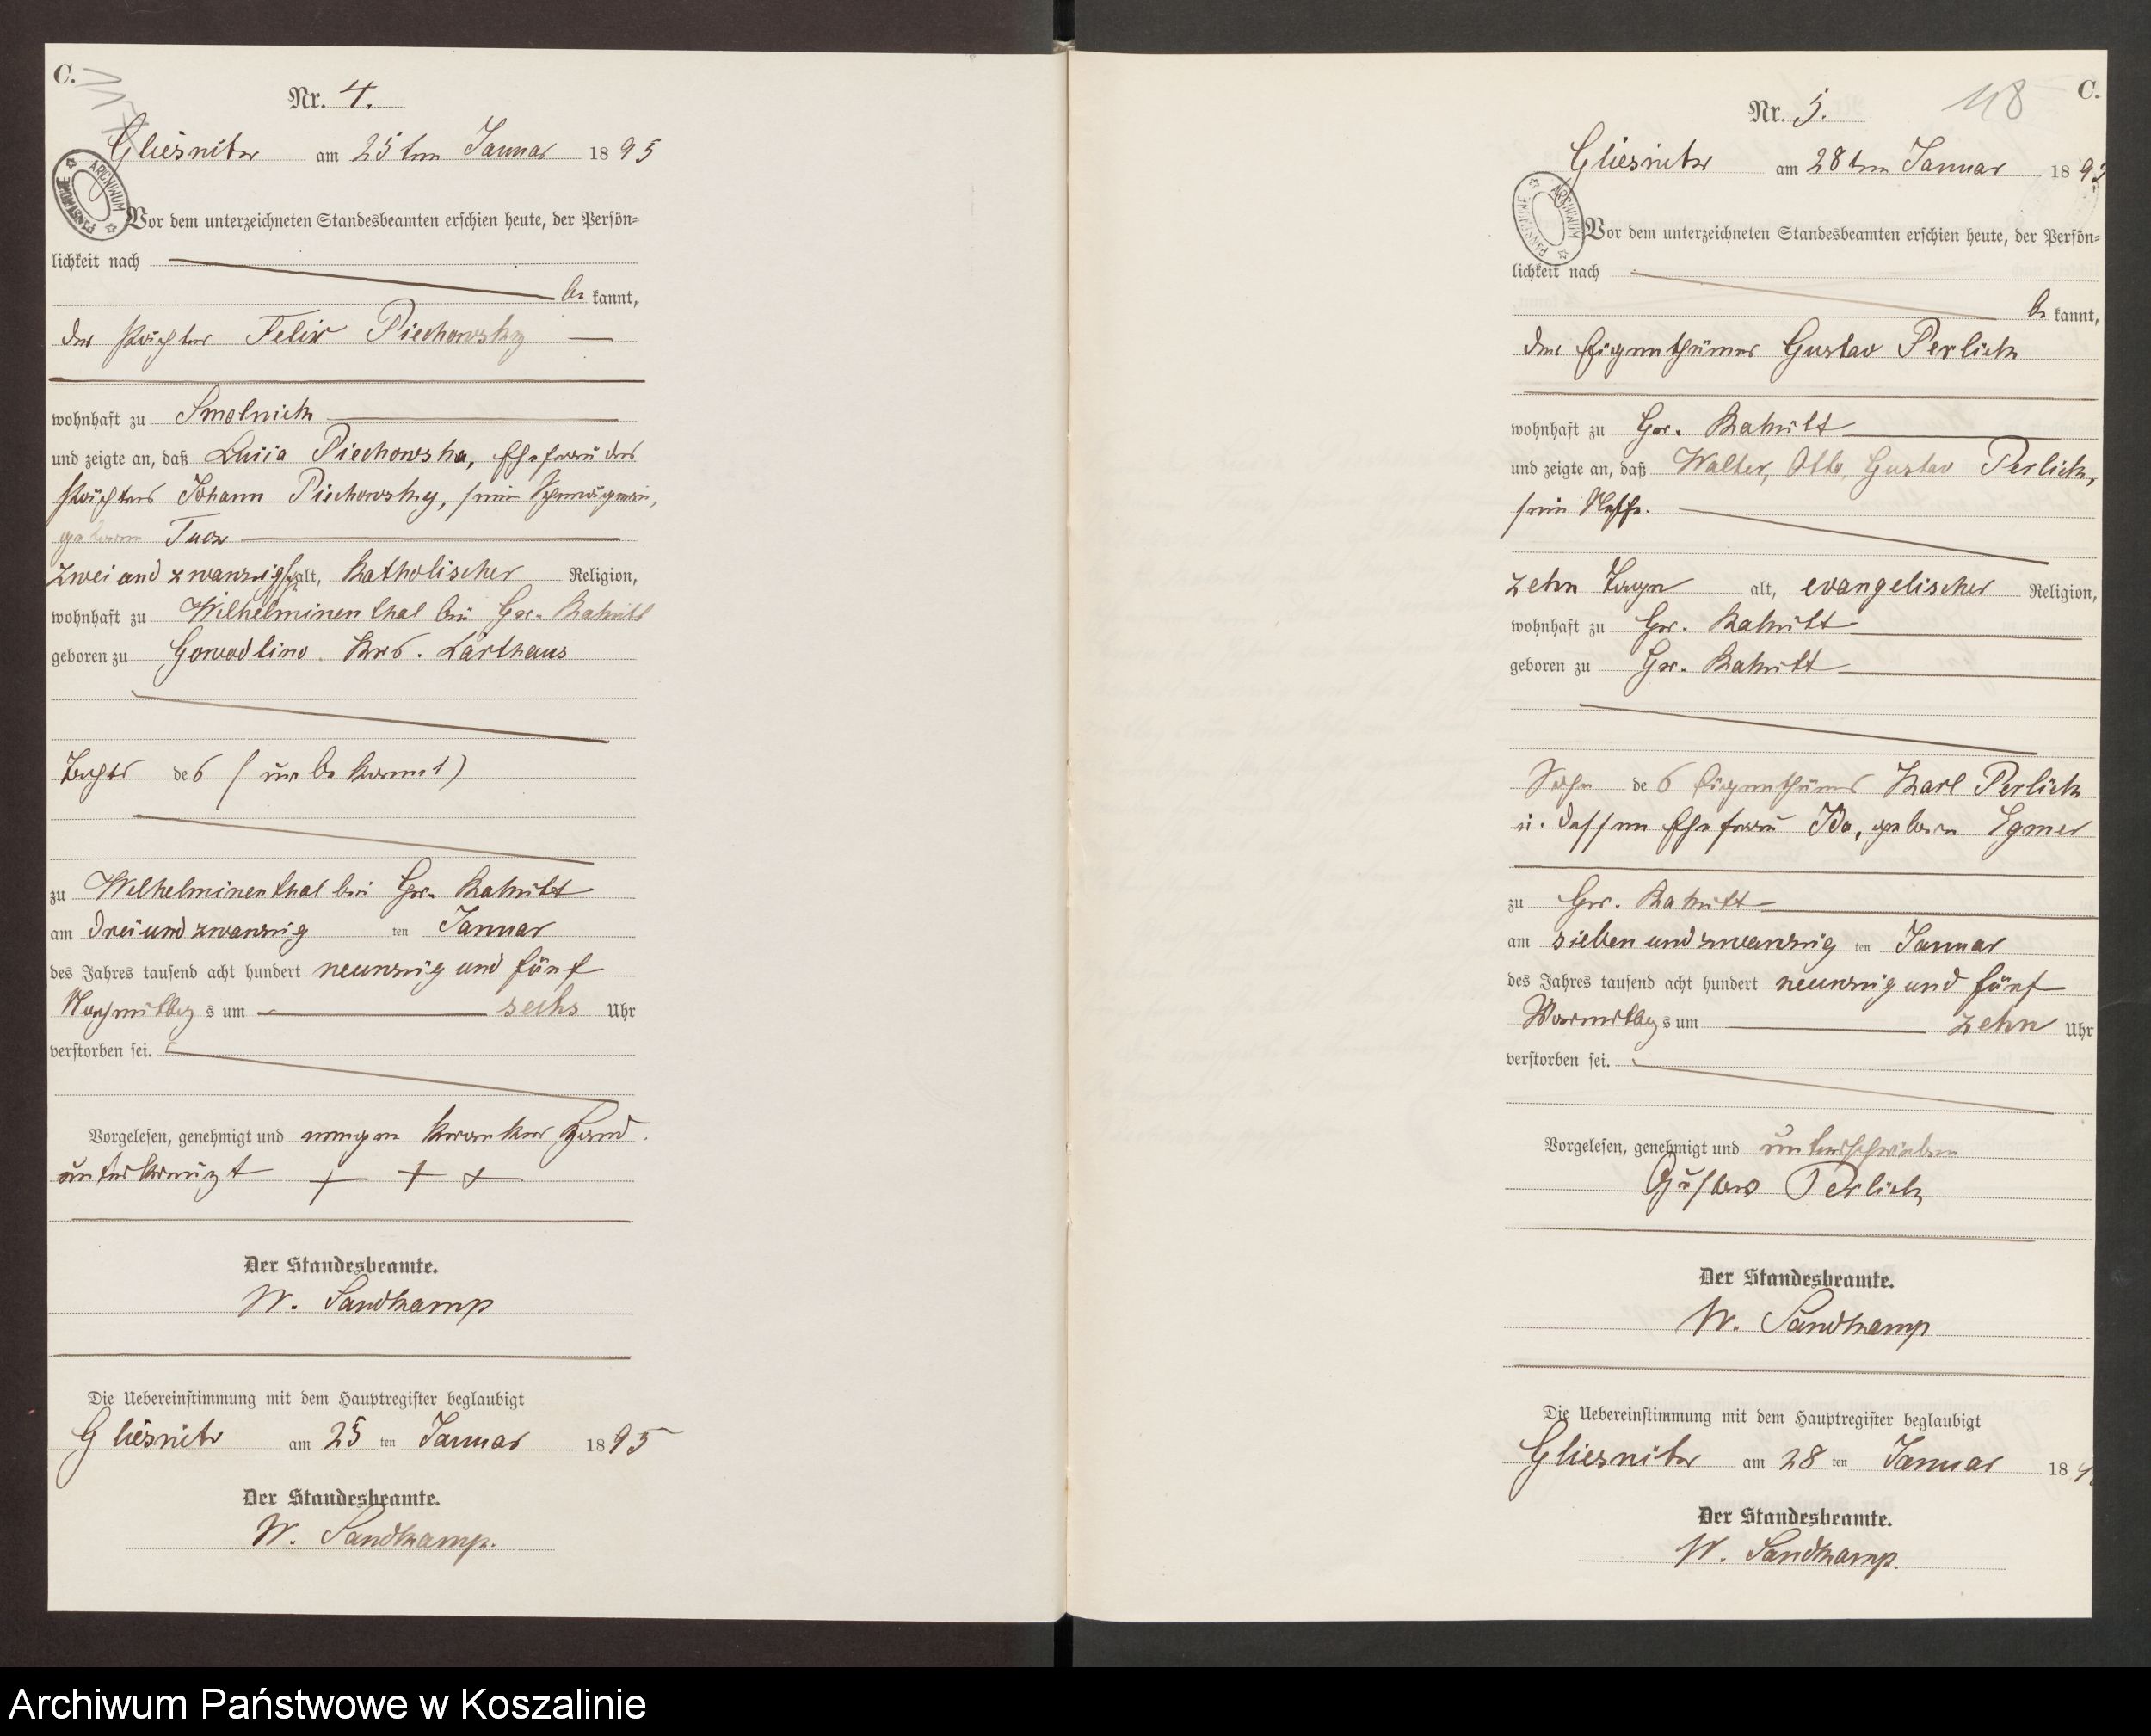 C.
Nr. 4.
Gliesnitz am 25ten Januar 1895
ARCHIWUM PAŃSTWOWE
Vor dem unterzeichneten Standesbeamten erschien heute, der Persön-
lichkeit nach
be kannt,
der Pächter Felix Piechowsky
wohnhaft zu Smolnick
und zeigte an, daß Lucia Piechowska, Ehefrau des
Pächters Johann Piechowsky, seine Schwägerin,
geborene
zwei und zwanzig alt, Katholischer Religion,
wohnhaft zu Wilhelminenthal bei Gr. Rakitt
geboren zu Gowidlino Krs. Carthaus
Tochter des (unbekannt)
zu Wilhelminenthal bei Gr. Rakitt
am dreiundzwanzig ten Januar
des Jahres tausend acht hundert neunzig und fünf
Nachmittags um sechs Uhr
verstorben sei.
Vorgelesen, genehmigt und wegen kranker Hand
unterkreuzt + + +
Der Standesbeamte.
W. Sandkamp
Die Uebereinstimmung mit dem Hauptregister beglaubigt
Gliesnitz am 25 ten Januar 1895
Der Standesbeamte.
W. Sandkamp.
118
C.
Nr. 5.
Gliesnitz am 28ten Januar 1895
ARCHIWUM PAŃSTWOWE
Vor dem unterzeichneten Standesbeamten erschien heute, der Persön-
lichkeit nach
be kannt,
der Eigenthümer Gustav Perlick
wohnhaft zu Gr. Rakitt
und zeigte an, daß Walter, Otto, Gustav Perlick,
sein Neffe.
zehn Tage alt, evangelischer Religion,
wohnhaft zu Gr. Rakitt
geboren zu Gr. Rakitt
Sohn des Eigenthümers Karl Perlick
u. dessen Ehefrau Ida, geborene Egmer
zu Gr. Rakitt
am sieben und zwanzig ten Januar
des Jahres tausend acht hundert neunzig und fünf
Vormittags um zehn Uhr
verstorben sei.
Vorgelesen, genehmigt und unterschrieben
Gustav Perlick
Der Standesbeamte.
W. Sandkamp
Die Uebereinstimmung mit dem Hauptregister beglaubigt
Gliesnitz am 28 ten Januar 18
Der Standesbeamte.
W. Sandkamp.
Archiwum Państwowe w Koszalinie